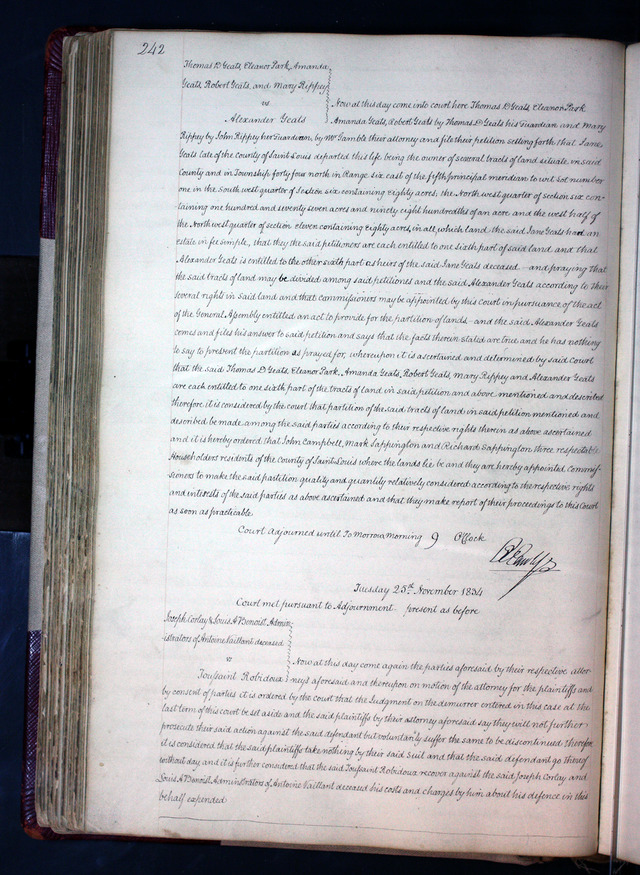 242
Thomas D Geats, Eleanor Park, Amanda
Geats, Robert Geats, and Mary Rippey
vs
Alexander Geats
Now at this day come into court here Thomas D Geats, Eleanor Park
Amanda Geats, Robert Geats by Thomas D Geats his Guardian and Mary
Rippey by John Rippey her Guardian, by Mr Gamble their attorney and file their petition setting forth that Jane
Geats late of the county of Saint Louis departed this life being the owner of several tracts of land situate in said
County and in Township forty four north in Range six east of the fifth principal meridien to wit Lot number
one in the South west quarter of section six containing Eighty acres, the North west quarter of section six con-
taining one hundred and seventy seven acres and ninety eight hundredths of an acre and the west half of
the North west quarter of section eleven containing Eighty acres, in all, which land the said Jane Geats had an
estate in fee simple, that they the said petitioners are each entitled to one sixth part of said land and that
Alexander Geats is entitled to the other sixth part as heirs of the said Jane Geats deceased — and praying that
the said tracts of land may be divided among said petitions and the said Alexander Geats according to their
several rights in said land and that commissioners may be appointed by this Court in pursuance of the act
of the General Assembly entitled an act to provide for the partition of lands — and the said Alexander Geats
comes and files his answer to said petition and says that the facts therein stated are true and he has nothing
to say to prevent the partition as prayed for, whereupon it is ascertained and determined by said Court
that the said Thomas D. Geats, Eleanor Park, Amanda Geats, Robert Geats, Mary Rippey and Alexander Geats
are each entitled to one sixth part of the tracts of land in said petition and above mentioned and described
therefore it is considered by the court that partition of the said tracts of land in said petition mentioned and
described be made among the said parties according to their respective rights therein as above ascertained
and it is hereby ordered that John Campbell, Mark Sappington and Richard Sappington three respectable
Householders residents of the County of Saint Louis where the lands lie be and they are hereby appointed Commis-
sioners to make the said partition quality and quantity relatively considered according to the respective rights
and interests of the said parties as above ascertained and that they make report of their proceedings to this Court
as soon as practicable.
Court adjourned until To Morrow morning 9 OClock
Tuesday 25th November 1834
Court met pursuant to Adjournment present as before
Joseph Corlay & Louis A Benoist Admin-
istrators of Antoine Vaillant deceased
vs
Toussaint Robidoux
Now at this day come again the parties aforesaid by their respective attor-
neys aforesaid and thereupon on motion of the attorney for the plaintiffs and
by consent of parties it is ordered by the court that the Judgment on the demurrer entered in this case at the
last term of this court be set aside and the said plaintiffs by their attorney aforesaid say they will not further
prosecute their said action against the said defendant but voluntarily suffer the same to be discontinued therefore
it is considered that the said plaintiffs take nothing by their said suit and that the said defendant go thereof
without day, and it is further considered that the said Toussaint Robidoux recover against the said Joseph Corlay and
Louis A Benoist Administrators of Antoine Vaillant deceased his costs and charges by him about his defence in this
behalf expended